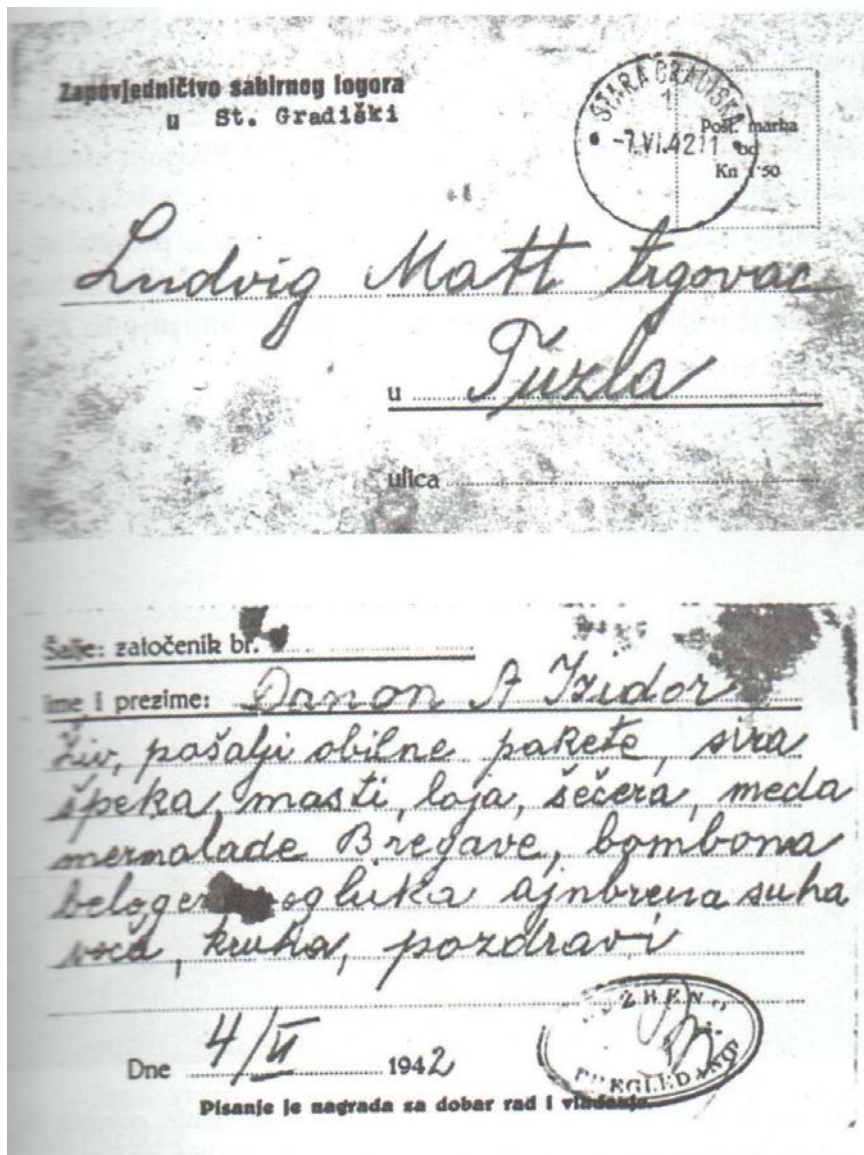 Zapovjedničtvo sabirnog logora
u St. Gradiški
STARA GRADIŠKA
1
-7.VI.42 11
Pošt. marka
od
Kn 1·50
Ludvig Matt trgovac
u Tuzla
ulica
Šalje: zatočenik br.
Ime i prezime: Danon A Izidor
živ, pošalji obilne pakete, sira
špeka, masti, loja, šečera, meda
mermalade Bregave, bombona
belog luka ajnbrena suha
voća, kruha, pozdravi
Dne 4/II 1942
PREGLEDANO
Pisanje je nagrada za dobar rad i vladanje.